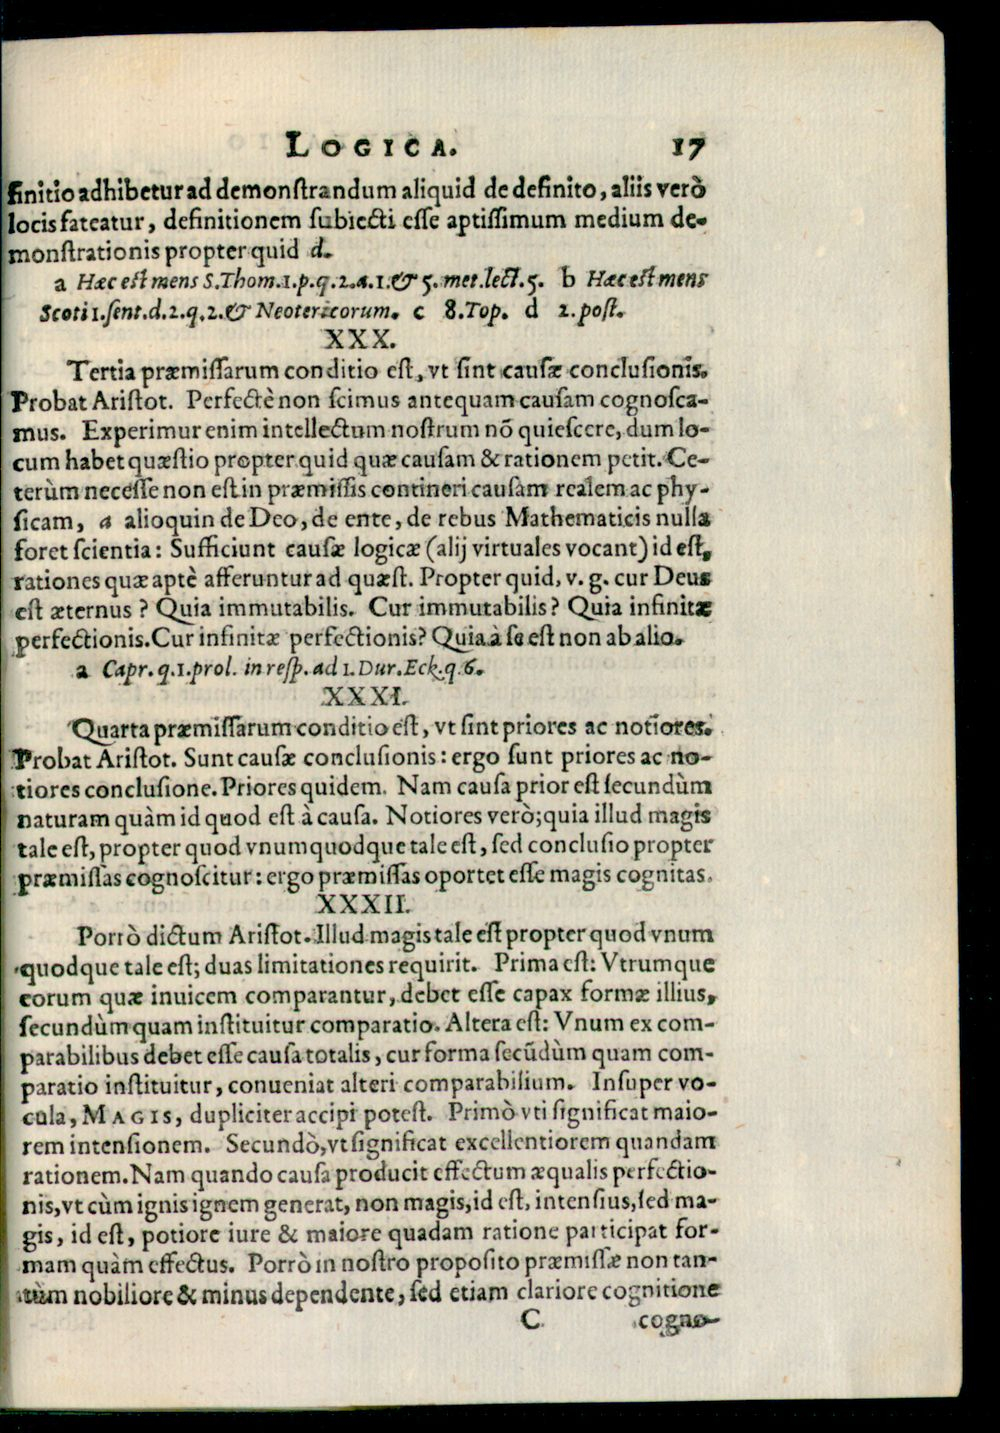 LOGICA. 17
finitio adhibetur ad demonſtrandum aliquid de definito, aliis verò
locis fateatur, definitionem ſubiecti eſſe aptiſſimum medium de-
monſtrationis propter quid d.
a Hæc eſt mens S. Thom. 1. p. q. 2. a. 1. & 5. met. lect. 5. b Hæc eſt mens
Scoti 1. ſent. d. 2. q. 2. & Neotericorum. c 8. Top. d 2. poſt.
XXX.
Tertia præmiſſarum conditio eſt, vt ſint cauſæ concluſionis.
Probat Ariſtot. Perfectè non ſcimus antequam cauſam cognoſca-
mus. Experimur enim intellectum noſtrum nõ quieſcere, dum lo-
cum habet quæſtio propter quid quæ cauſam & rationem petit. Ce-
terùm neceſſe non eſt in præmiſſis contineri cauſam realem ac phy-
ſicam, a alioquin de Deo, de ente, de rebus Mathematicis nulla
foret ſcientia: Sufficiunt cauſæ logicæ (alij virtuales vocant) id eſt,
rationes quæ aptè afferuntur ad quæſt. Propter quid, v. g. cur Deus
eſt æternus? Quia immutabilis. Cur immutabilis? Quia infinitæ
perfectionis. Cur infinitæ perfectionis? Quia à ſe eſt non ab alio.
a Capr. q. 1. prol. in reſp. ad 1. Dur. Eck. q. 6.
XXXI.
Quarta præmiſſarum conditio eſt, vt ſint priores ac notiores.
Probat Ariſtot. Sunt cauſæ concluſionis: ergo ſunt priores ac no-
tiores concluſione. Priores quidem. Nam cauſa prior eſt ſecundùm
naturam quàm id quod eſt à cauſa. Notiores verò; quia illud magis
tale eſt, propter quod vnumquodque tale eſt, ſed concluſio propter
præmiſſas cognoſcitur: ergo præmiſſas oportet eſſe magis cognitas.
XXXII.
Porrò dictum Ariſtot. Illud magis tale eſt propter quod vnum
quodque tale eſt; duas limitationes requirit. Prima eſt: Vtrumque
eorum quæ inuicem comparantur, debet eſſe capax formæ illius,
ſecundùm quam inſtituitur comparatio. Altera eſt: Vnum ex com-
parabilibus debet eſſe cauſa totalis, cur forma ſecũdùm quam com-
paratio inſtituitur, conueniat alteri comparabilium. Inſuper vo-
cula, MAGIS, dupliciter accipi poteſt. Primò vti ſignificat maio-
rem intenſionem. Secundò, vt ſignificat excellentiorem quandam
rationem. Nam quando cauſa producit effectum æqualis perfectio-
nis, vt cùm ignis ignem generat, non magis, id eſt, intenſius, ſed ma-
gis, id eſt, potiore iure & maiore quadam ratione participat for-
mam quàm effectus. Porrò in noſtro propoſito præmiſſæ non tan-
tùm nobiliore & minus dependente, ſed etiam clariore cognitione
C cogno-